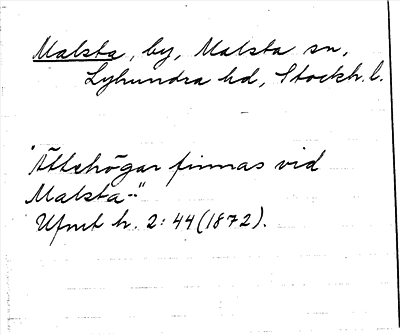 Malsta, by, Malsta sn,
Lyhundra hd, Stockh. l.
"Ättehögar finnas vid
Malsta-"
Ufmt h. 2: 44 (1872).